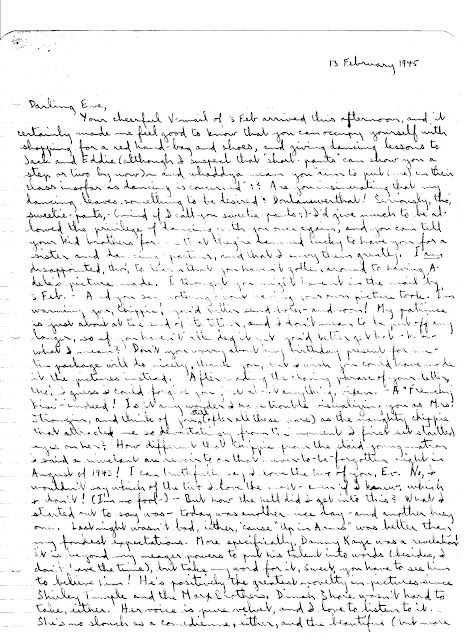 13 February 1945
Darling Eve,
Your cheerful V-mail of 3 Feb arrived this afternoon, and it
certainly made me feel good to know that you can occupy yourself with
shopping for a red hand-bag and shoes, and giving dancing lessons to
Jack and Eddie (although I suspect that "short pants" can show you a
step or two by now) - and whaddya mean you "aim to put in their
class insofar as dancing is concerned"?? Are you insinuating that my
dancing leaves something to be desired? Dontanswerthat! Seriously, tho,
sweetie-pants, - (mind if I call you sweetie pants?) - I'd give much to be al-
lowed the privilege of dancing with you once again, and you can tell
your kid brothers for me that they're damned lucky to have you for a
sister and dancing partner, and that I envy them greatly. I am
disappointed, tho, to learn that you haven't gotten around to having A-
dele's picture made. I thought you might have it in the mail by
3 Feb. And you say nothing about having your own picture took. I'm
warning you, Chippie! you'd better send both - and soon! My patience
is just about at the end of its, and I don't mean to be put off any
longer, so if you haven't already you'd better get hot
what I mean? Don't you worry about my birthday present for me -
the package will do nicely, thank you, but I wish you could have made
it the pictures instead. After reading the closing phrase of your letter,
tho, I guess I could forgive you most anything. "A Frenchy
kiss" - indeed! Is it any wonder I have trouble visualizing you as Mrs.
Strongin, and think of you still (after all these years) as the naughty chippie
that attracted me so from the moment I first set
eyes on her? How different that chippie from the staid young matron
I said a reluctant au revoir to on that never-to-be-forgotten night in
August of 1943! I can truthfully say I love the two of you, Ev. No, I
wouldn't say which of the two I love the most - even if I knew, which
I don't! (I'm no fool-) - But how the hell did I get into this? What I
started out to say was - today was another nice day - and another busy
one. Last night wasn't bad, either, 'cause "Up in Arms" was better than
my fondest expectations. More specifically, Danny Kaye was a revelation!
It is beyond my meager powers to put his talent into words (besides, I
don't have the time), but take my word for it, Sweet, you have to see him
to believe him! He's positively the greatest novelty in pictures since
Shirley Temple and the Marx Brothers. Dinah Shore wasn't hard to
take, either. Her voice is pure velvet, and I love to listen to it.
She's no slouch as a comedienne, either, and the beautiful (but more